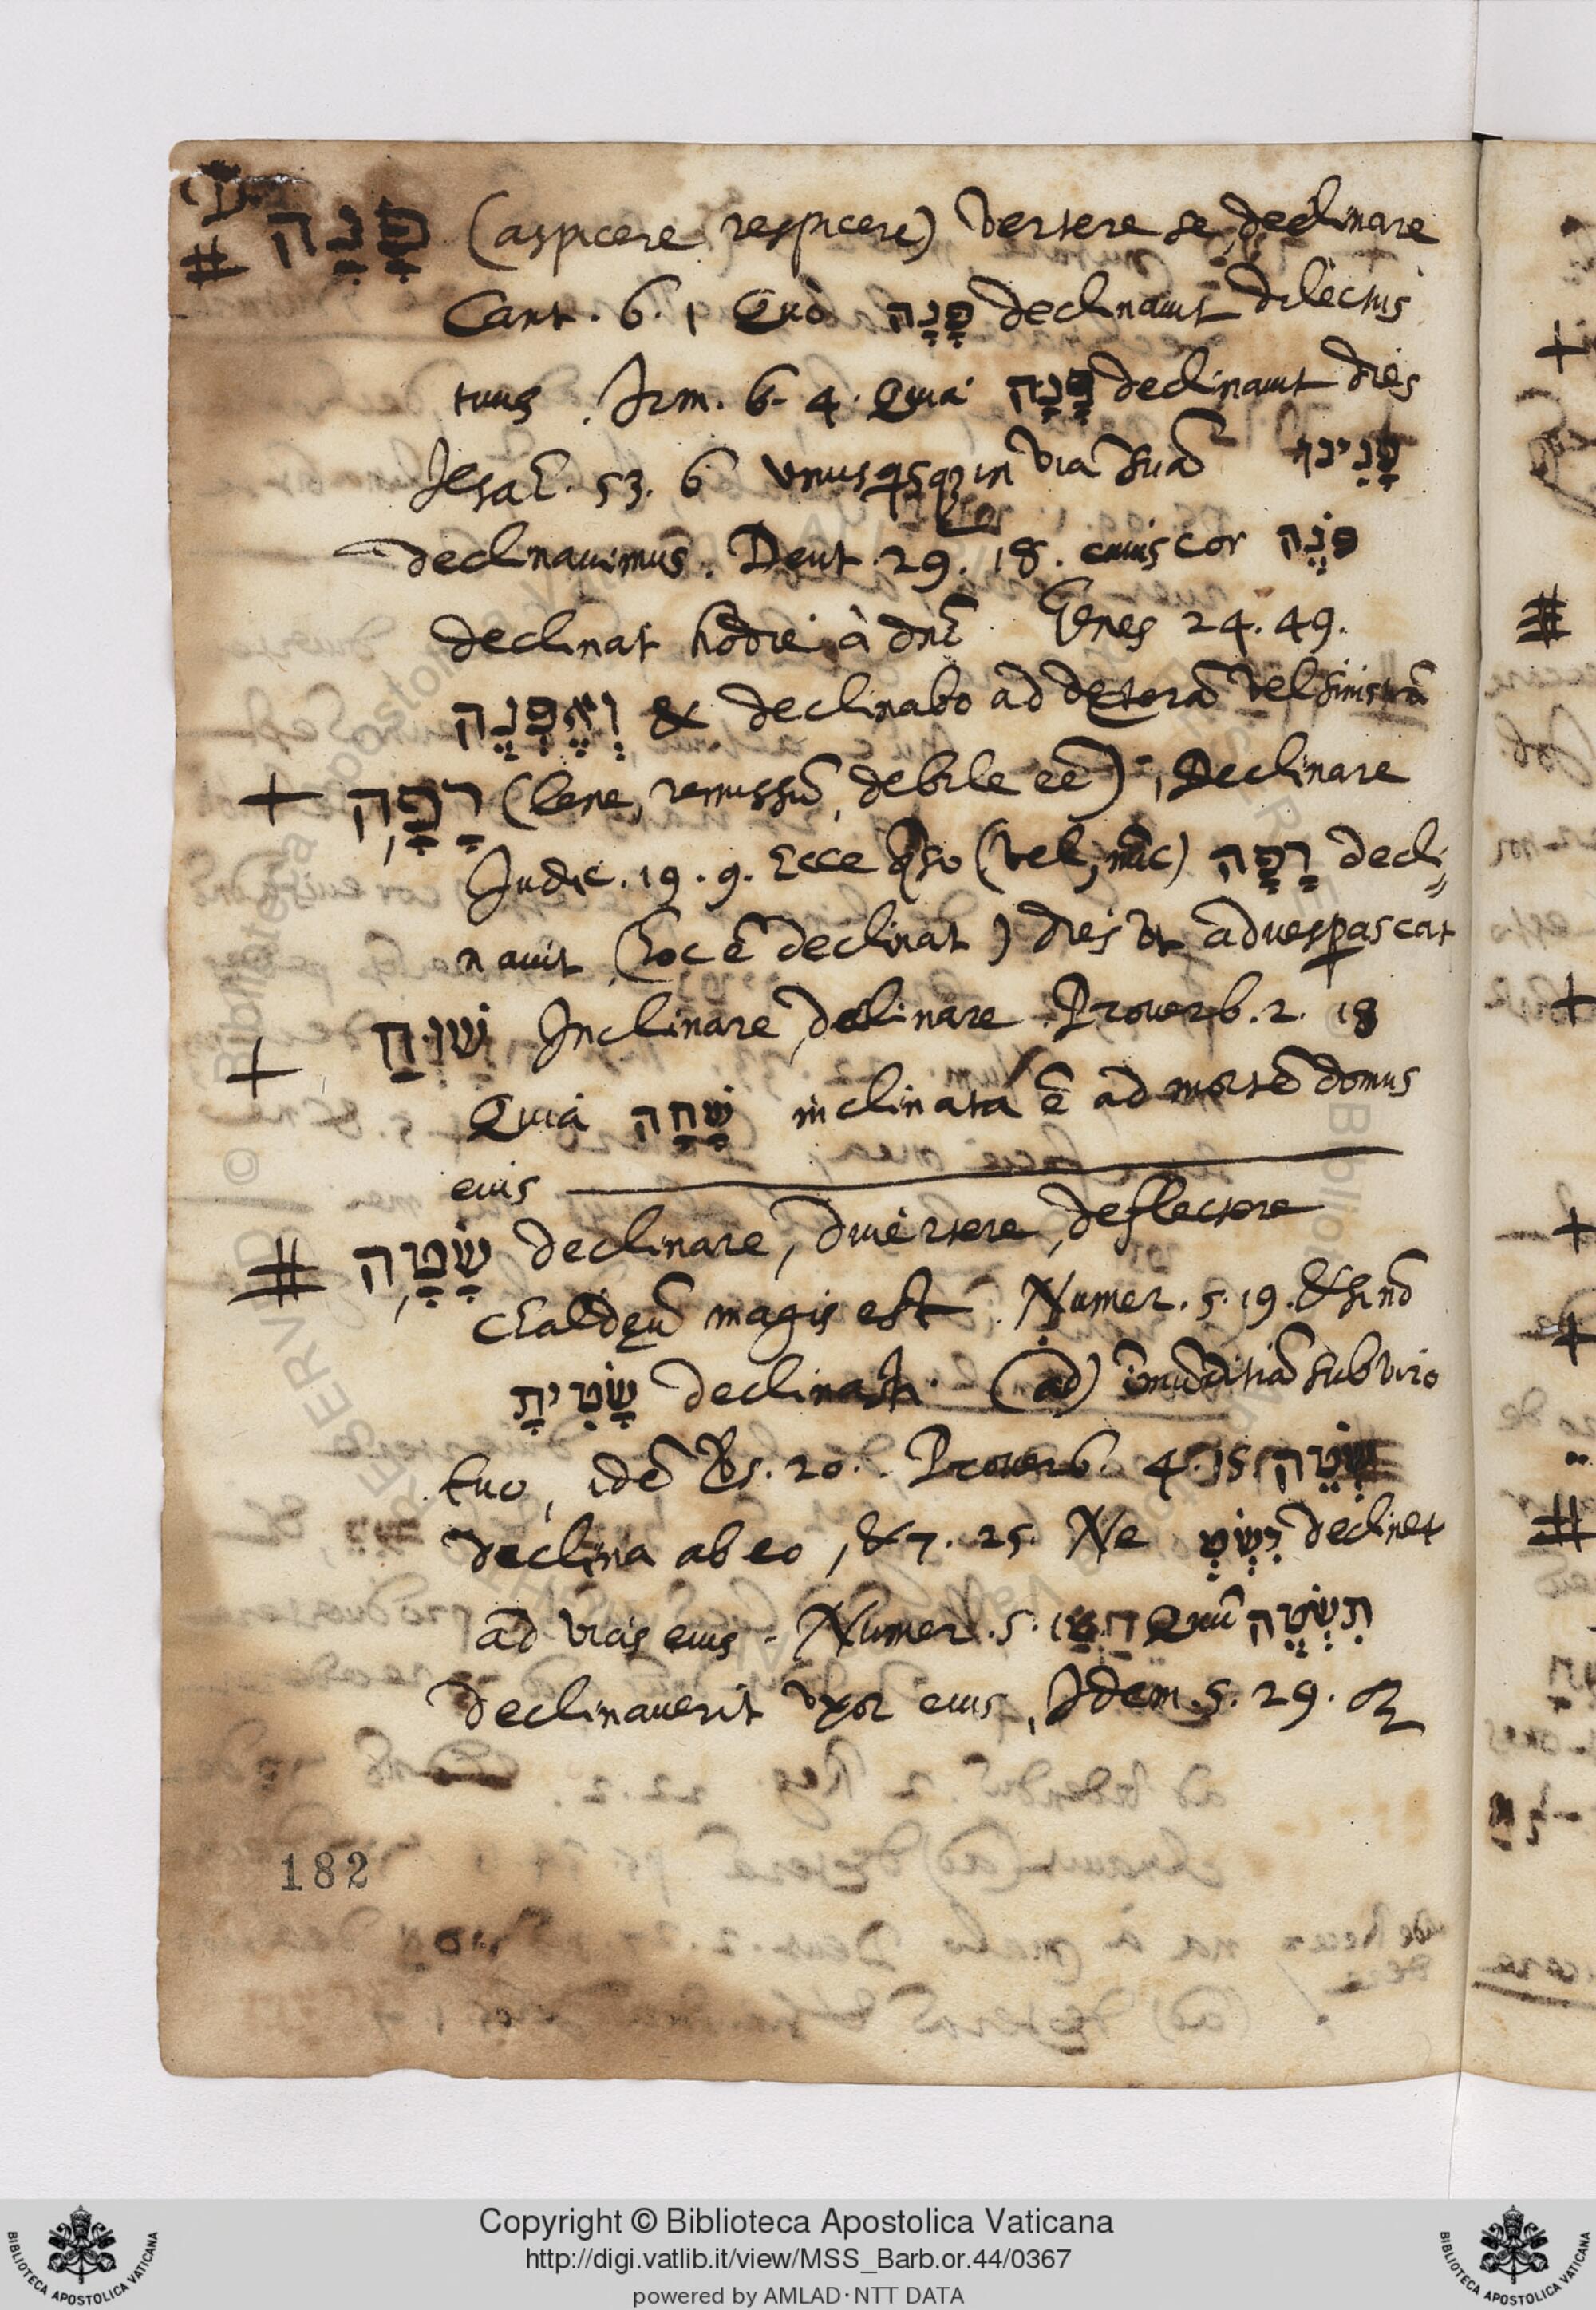 D.
# פָּנָה (aspicere, respicere) Vertere se, declinare
Cant. 6. 1 Quò פָּנָה declinauit dilectus
tuus. Jrm. 6. 4. Quia פָּנָה declinauit dies
Jesa. 53. 6 vnusqsqz in viã suã פָּנִינוּ
declinauimus. Deut. 29. 18. cuius cor פֹּנֶה
declinat hodie à dnõ Genes 24. 49.
וְאֶפְנֶה & declinabo ad dexterã vel sinistrã
+ רָפָה (lene, remissũ, debile eẽ), Declinare
Judic. 19. 9. Ecce qso (vel, nũc) רָפָה decli-
nauit (hoc ẽ declinat) dies vt aduesperascat
+ שׁוּחַ Inclinare, declinare Prouerb. 2. 18
Quia שָׁחָה inclinata ẽ ad mortẽ domus
eius
# שָׂטָה declinare, diuertere, deflectere
chaldęũ magis est. Numer. 5. 19. & si nõ
שָׂטִית declinasti. (ad) imũditiã sub viro
tuo, idẽ Vs. 20. Prouerb. 4. 15 שְׂטֵה
declina ab eo, & 7. 25. Ne יֵשְׂטְ declinet
ad vias eius. Numer. 5. 12. Quũ תִשְׂטֶה
declinauerit vxor eius, Idem 5. 29.
182
Copyright © Biblioteca Apostolica Vaticana
http://digi.vatlib.it/view/MSS_Barb.or.44/0367
powered by AMLAD·NTT DATA
BIBLIOTECA APOSTOLICA VATICANA
BIBLIOTECA APOSTOLICA VATICANA